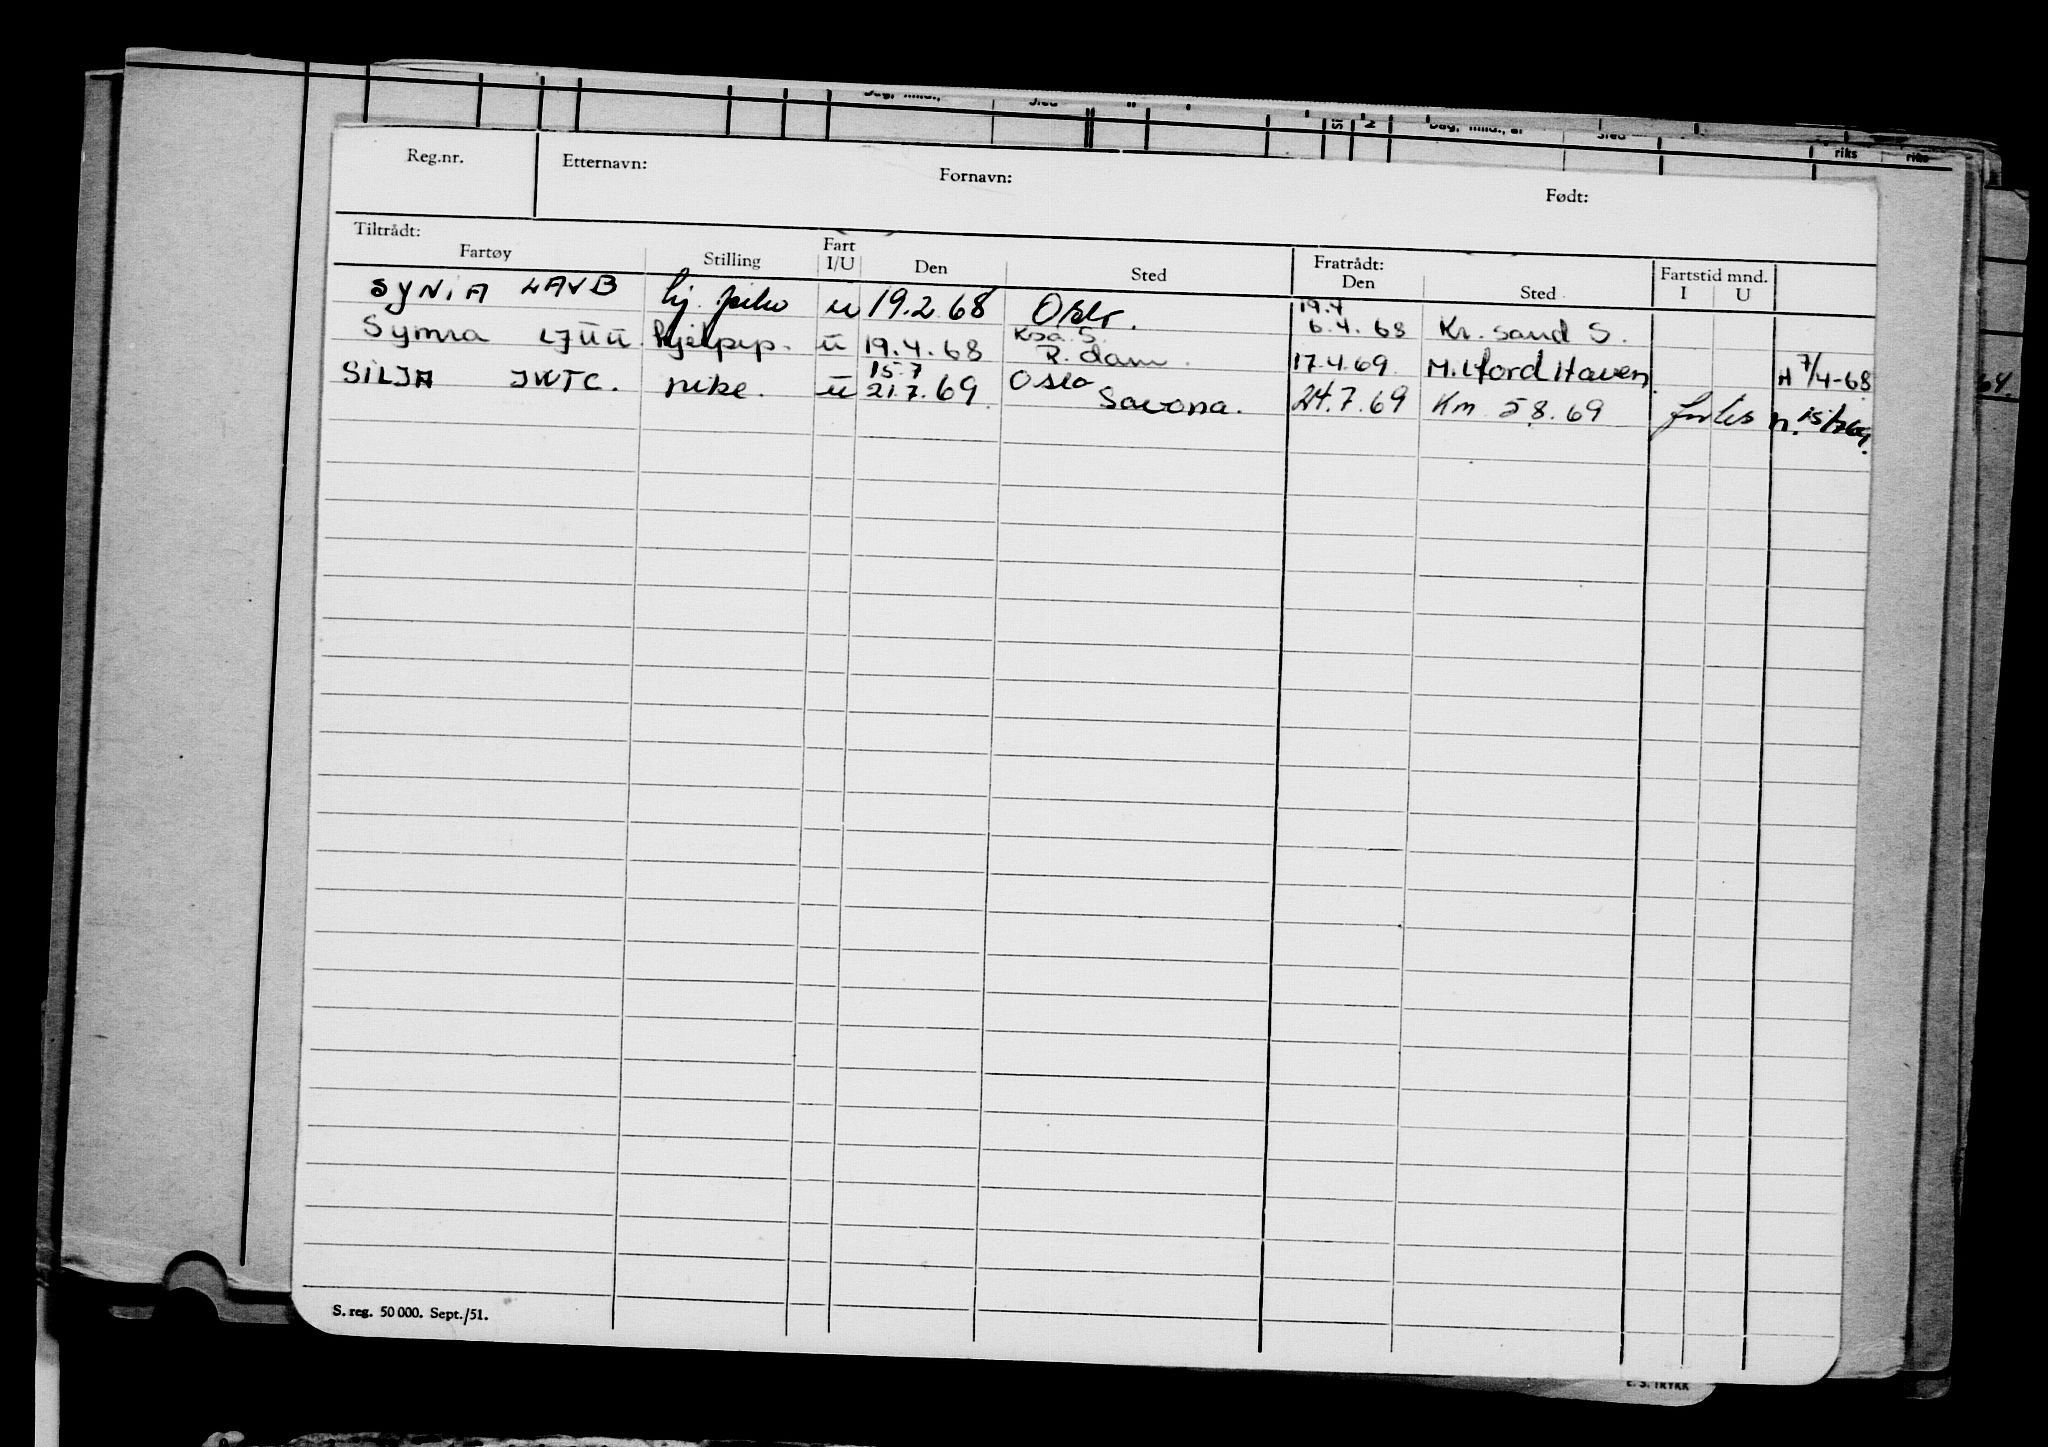 Reg.nr. Etternavn: Fornavn: Født:
Tiltrådt: Fratrådt: Fartstid mnd.
Fartøy Stilling Fart I/U Den Sted Den Sted I U
SYNIA LAVB u 19.2.68 Oslo. 19.4
6.4.68 Kr. sand S.
Symra LJUU hjelpep. u 19.4.68 Ksa. S. R. dam. 17.4.69 Milford Haven H 7/4-68
SILJA JWTC. pike. u 15.7 21.7.69 Oslo Savona. 24.7.69 Km 5.8.69 n. 15/7 69.
S. reg. 50 000. Sept./51.
riks riks
Sted
E. S. TRYKK